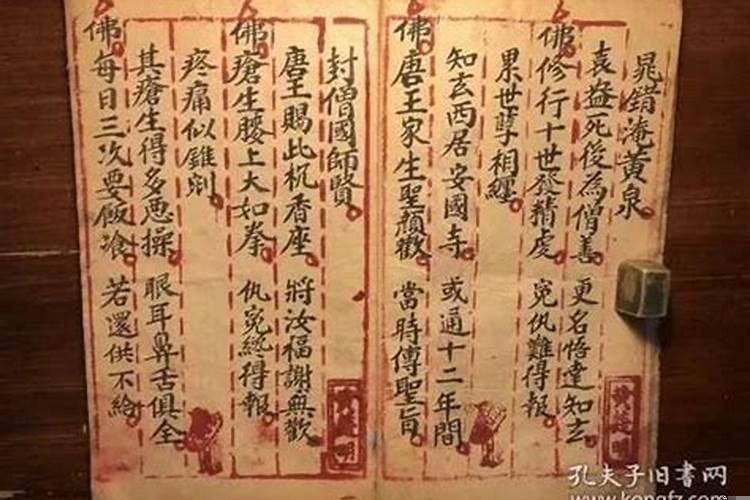 晁錯淹黃泉
袁益死後為僧善 更名悟達知玄
佛修行十世發精虔 寃仇難得報
累世孽相纏
知玄西居安國寺 或通十二年間
佛唐王家生聖顏歡 當時傳聖旨
封僧國師賢
唐王賜此杌香座 將汝福謝無歡
佛瘡生腰上大如拳 仇寃終得報
疼痛似錐剜
其瘡生得多恶操 眼耳鼻舌俱全
佛每日三次要飯飡 若還供不給
孔夫子旧书网